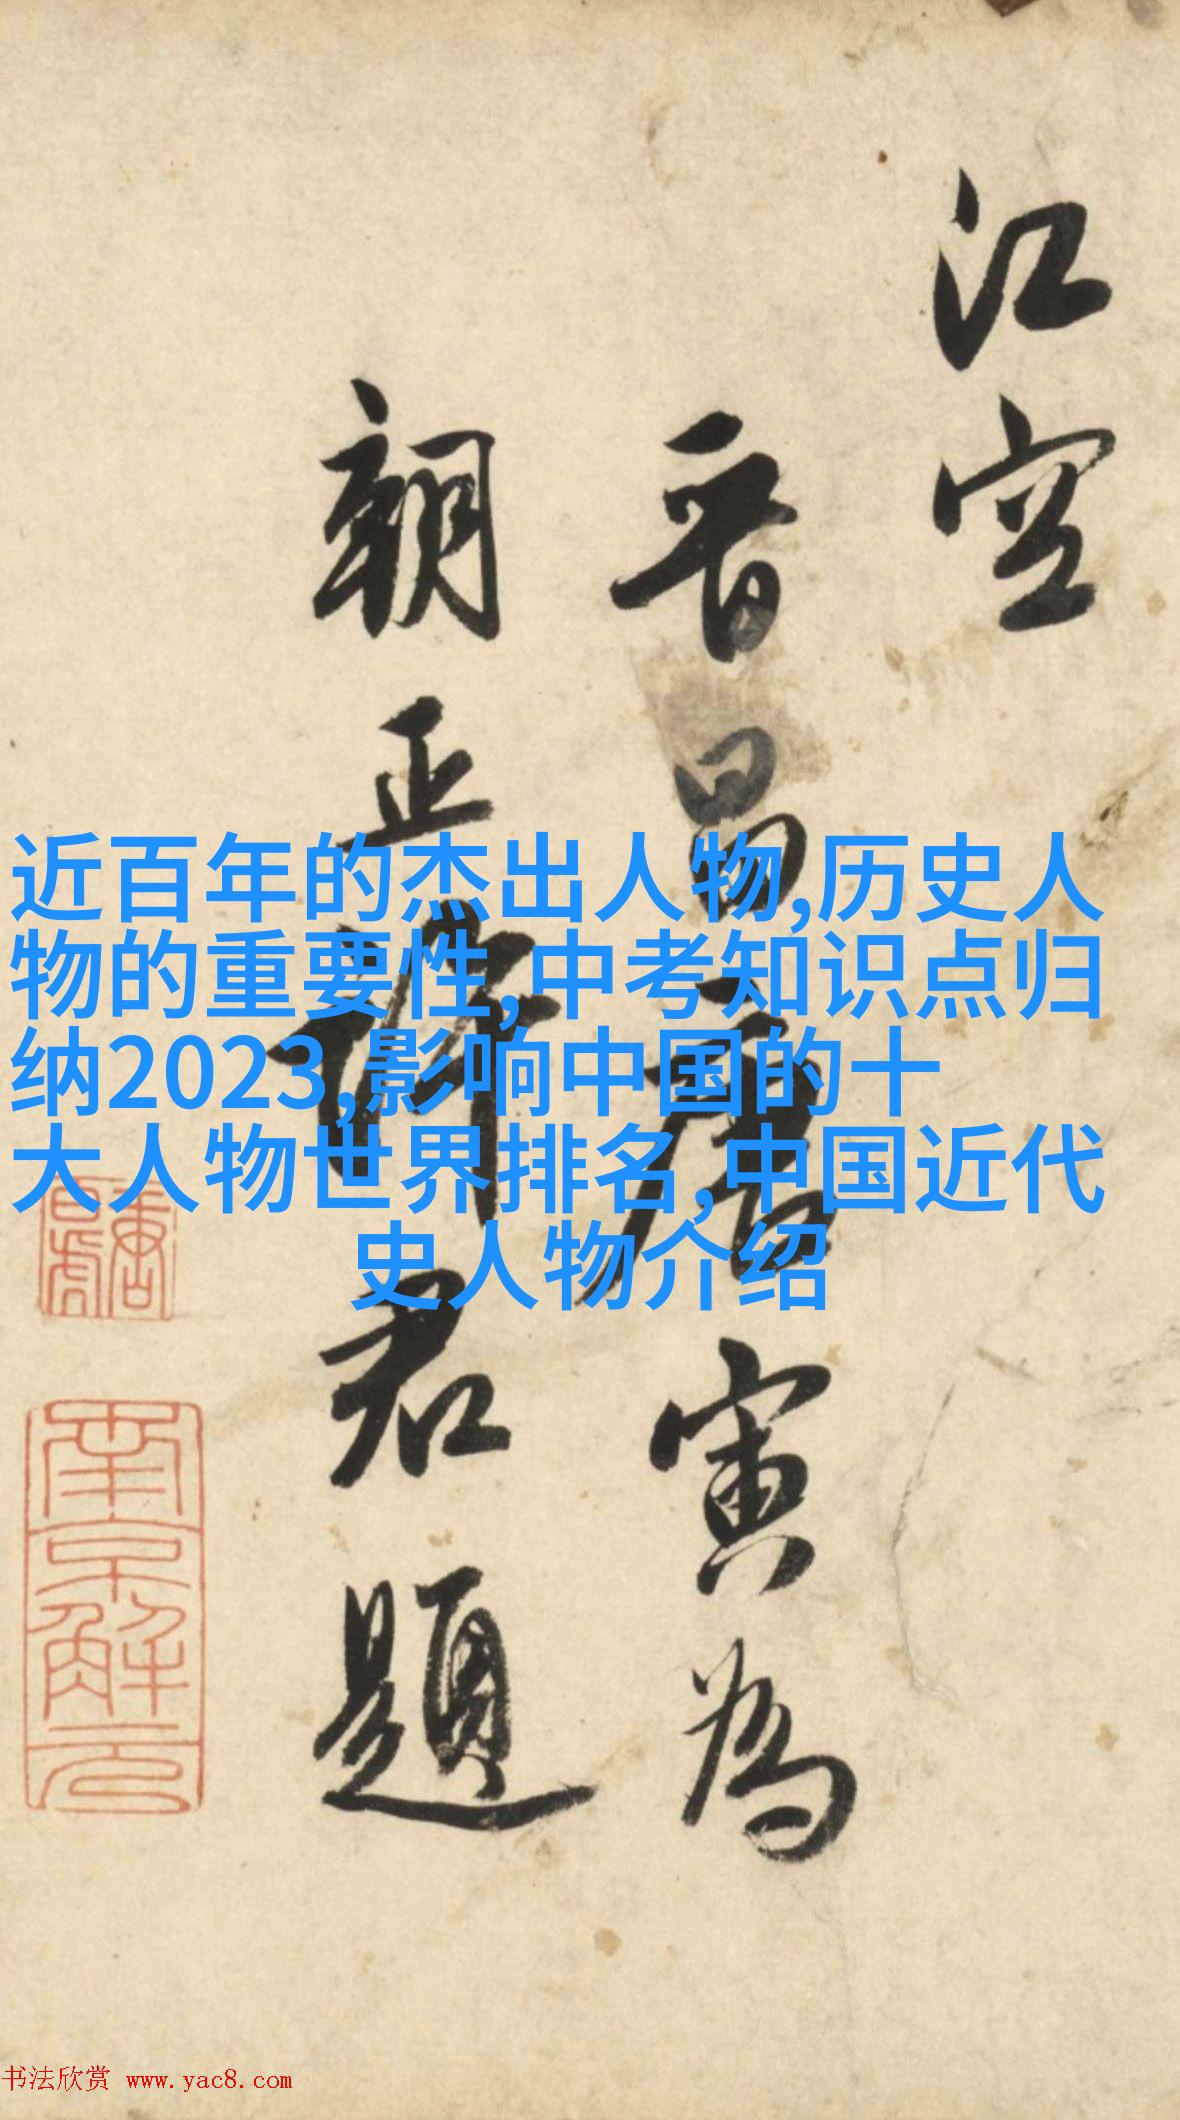 江空
晋昌唐寅为
朝正谭君题
近百年的杰出人物,历史人
物的重要性,中考知识点归
纳2023,影响中国的十
大人物世界排名,中国近代
史人物介绍
南京解元
书法欣赏 www.yac8.com